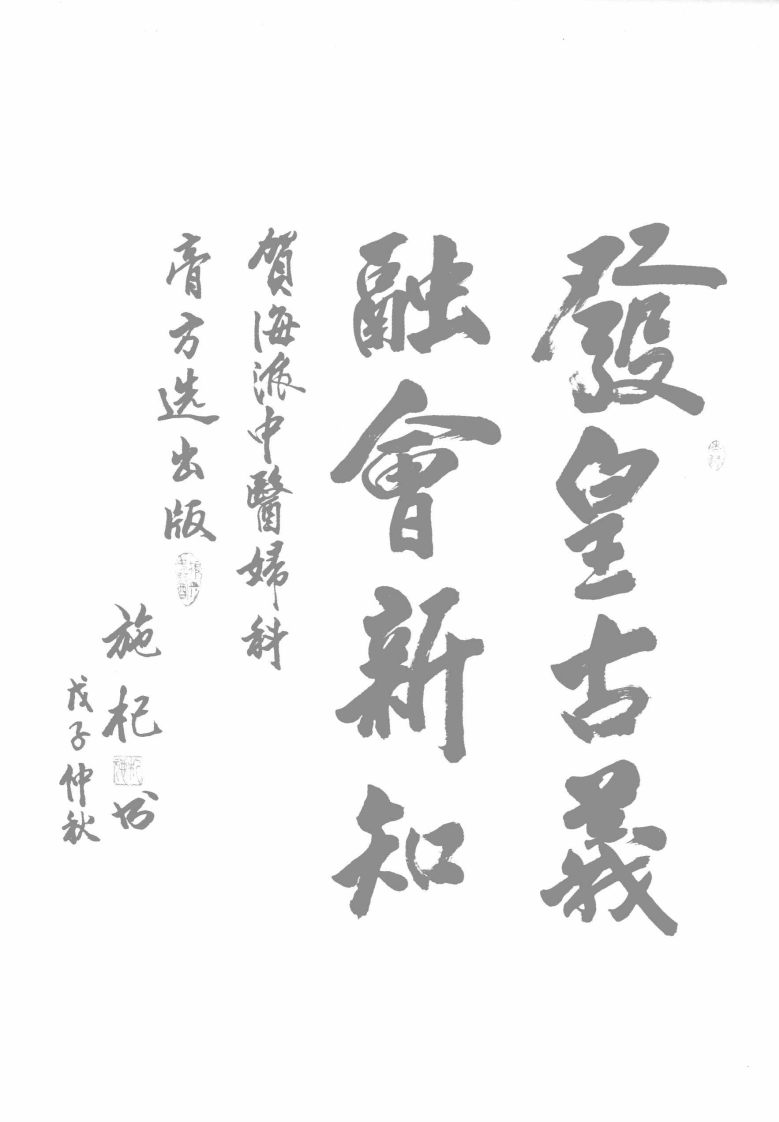 發皇古義
融會新知
賀海派中醫婦科
膏方选出版
施杞
戊子仲秋